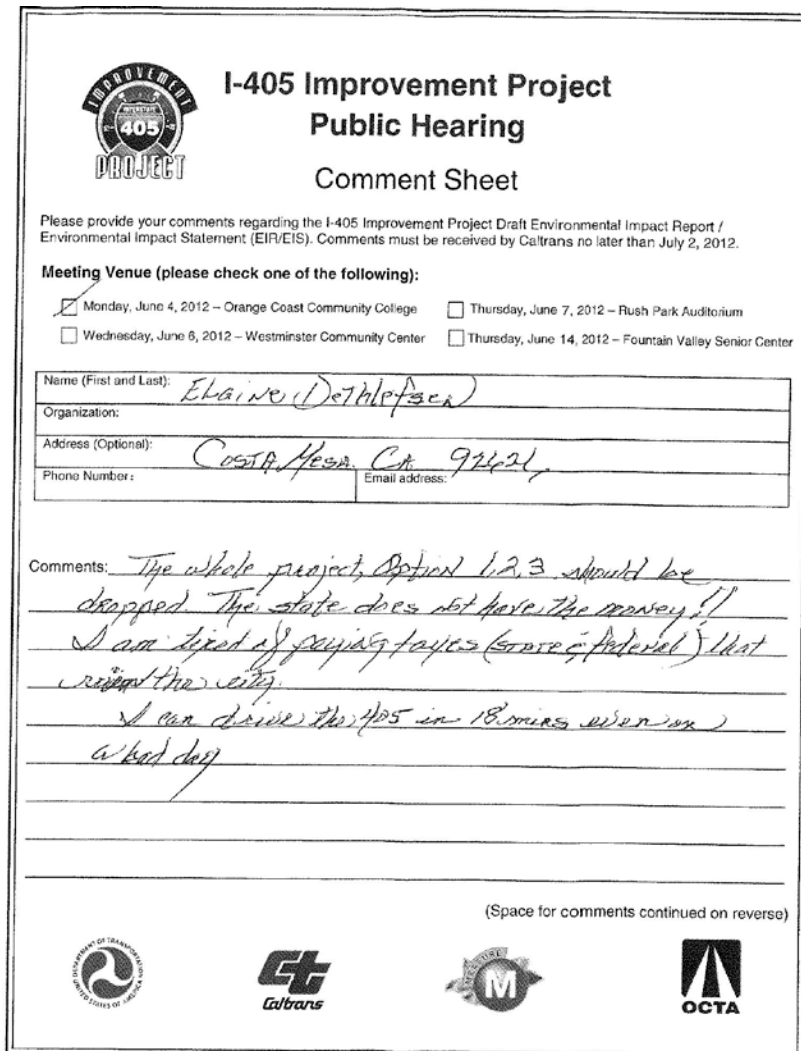 IMPROVEMENT
INTERSTATE
405
PROJECT
I-405 Improvement Project
Public Hearing
Comment Sheet
Please provide your comments regarding the I-405 Improvement Project Draft Environmental Impact Report /
Environmental Impact Statement (EIR/EIS). Comments must be received by Caltrans no later than July 2, 2012.
Meeting Venue (please check one of the following):
Monday, June 4, 2012 – Orange Coast Community College
Thursday, June 7, 2012 – Rush Park Auditorium
Wednesday, June 6, 2012 – Westminster Community Center
Thursday, June 14, 2012 – Fountain Valley Senior Center
Name (First and Last): Elaine Dethlefsen
Organization:
Address (Optional): Costa Mesa. CA 92626
Phone Number:
Email address:
Comments: The whole project, Option 1,2,3 should be
dropped. The state does not have the money!!
I am tired of paying taxes (state & federal) that
the city.
I can drive the 405 in 18 mins even on
a bad day
(Space for comments continued on reverse)
DEPARTMENT OF TRANSPORTATION
UNITED STATES OF AMERICA
Caltrans
MEASURE
M
OCTA